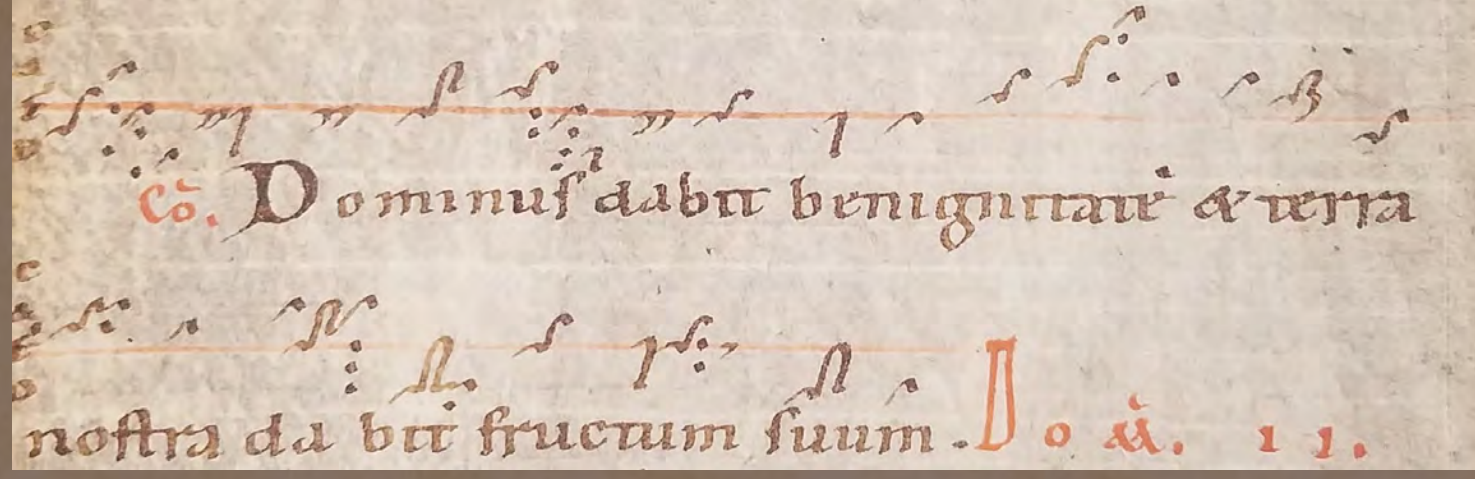 Cō. Dominuſ dabit benignitatē & terra
noſtra da bit fructum ſuum. Do m̄. 11.